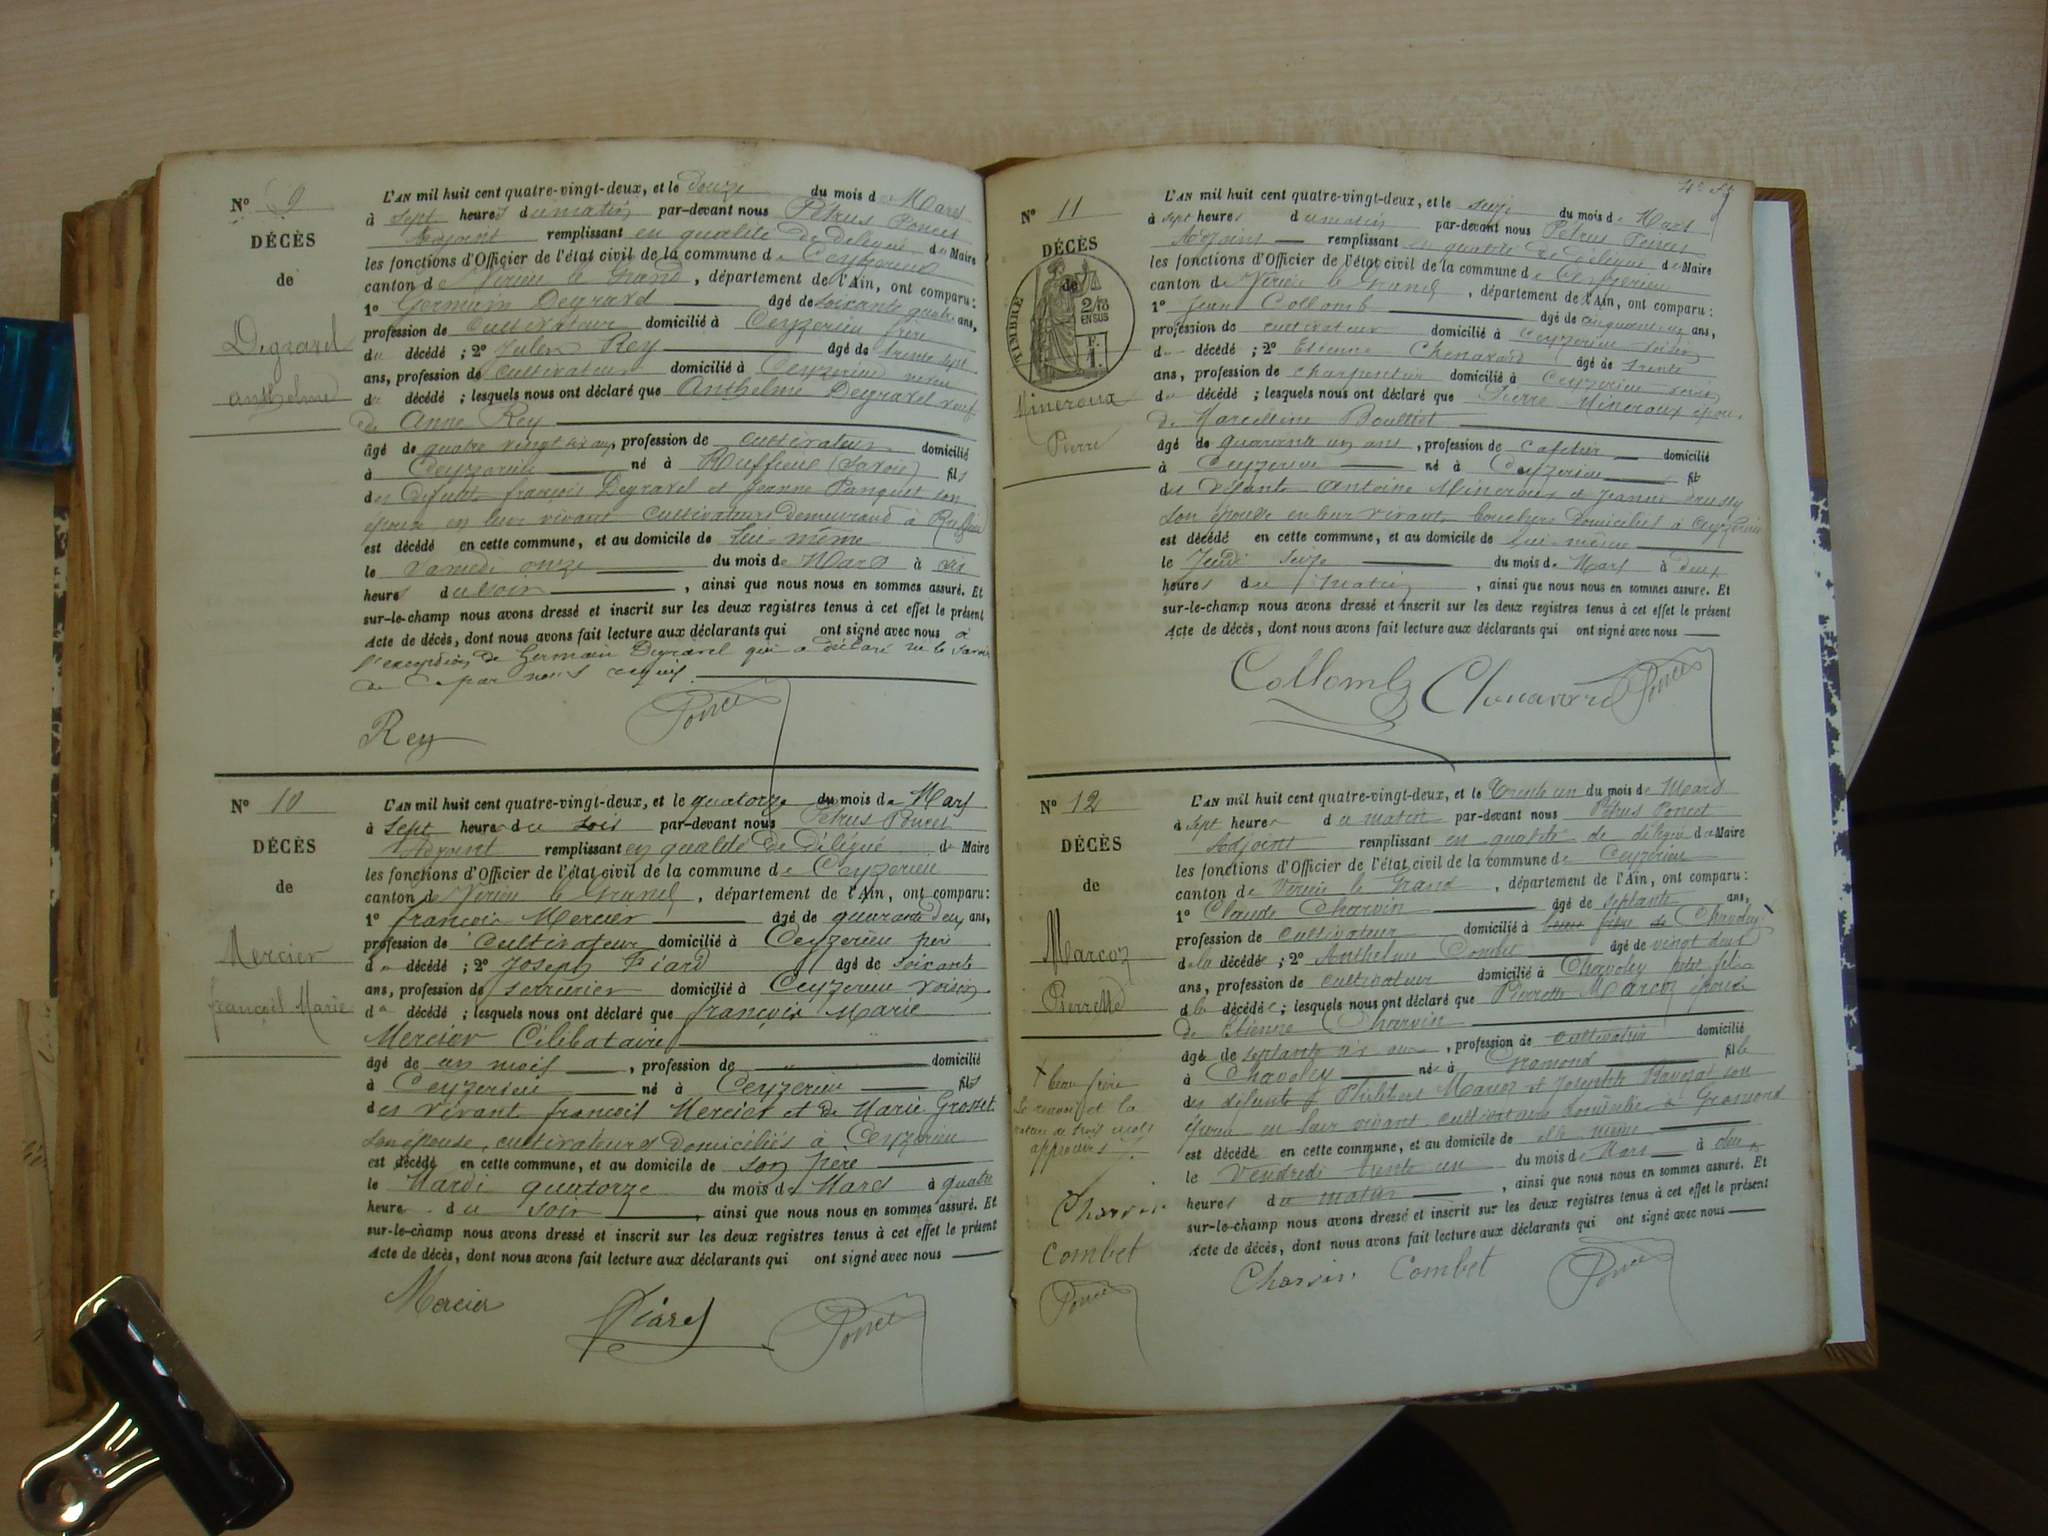 N° 9
DÉCÈS
de
Degravel
anthelme
L'AN mil huit cent quatre-vingt-deux, et le douze du mois de Mars
à sept heures du matin par-devant nous Pétrus Poncet
Adjoint remplissant en qualité de délégué du Maire
les fonctions d'Officier de l'état civil de la commune de Ceyzerieu
canton de Virieu le Grand, département de l'Ain, ont comparu:
1° Germain Degravel âgé de soixante quatre ans,
profession de Cultivateur domicilié à Ceyzerieu frère
du décédé; 2° Julien Rey âgé de trente sept
ans, profession de cultivateur domicilié à Ceyzerieu neveu
du décédé; lesquels nous ont déclaré que Anthelme Degravel veuf
de Anne Rey
âgé de quatre vingt ans, profession de cultivateur domicilié
à Ceyzerieu né à Ruffieux (Savoie) fils
des défunts françois Degravel et Jeanne Panquet son
épouse en leur vivant cultivateurs demeurant à Ruffieux
est décédé en cette commune, et au domicile de lui-même
le Samedi onze du mois de Mars à six
heures du soir, ainsi que nous nous en sommes assuré. Et
sur-le-champ nous avons dressé et inscrit sur les deux registres tenus à cet effet le présent
Acte de décès, dont nous avons fait lecture aux déclarants qui ont signé avec nous à
l'exception de Germain Degravel qui a déclaré ne le savoir
de ce par nous requis.
Rey Poncet
N° 10
DÉCÈS
de
Mercier
françois Marie
L'AN mil huit cent quatre-vingt-deux, et le quatorze du mois de Mars
à sept heures du soir par-devant nous Pétrus Poncet
Adjoint remplissant en qualité de Délégué du Maire
les fonctions d'Officier de l'état civil de la commune de Ceyzerieu
canton de Virieu le Grand, département de l'Ain, ont comparu:
1° françois Mercier âgé de quarante deux ans,
profession de Cultivateur domicilié à Ceyzerieu père
du décédé; 2° Joseph Piard âgé de soixante
ans, profession de serrurier domicilié à Ceyzerieu voisin
du décédé; lesquels nous ont déclaré que françois Marie
Mercier Célibataire
âgé de un mois, profession de domicilié
à Ceyzerieu né à Ceyzerieu fils
des vivant françois Mercier et de Marie Grosset
son épouse, cultivateurs domiciliés à Ceyzerieu
est décédé en cette commune, et au domicile de son père
le Mardi quatorze du mois de Mars à quatre
heures du soir, ainsi que nous nous en sommes assuré. Et
sur-le-champ nous avons dressé et inscrit sur les deux registres tenus à cet effet le présent
Acte de décès, dont nous avons fait lecture aux déclarants qui ont signé avec nous
Mercier Piard Poncet
N° 11
DÉCÈS
de
TIMBRE
2/10
EN SUS
Minereux
Pierre
L'AN mil huit cent quatre-vingt-deux, et le seize du mois de Mars
à sept heures du matin par-devant nous Petrus Poncet
Adjoint remplissant en qualité de délégué du Maire
les fonctions d'Officier de l'état civil de la commune de Ceyzerieu
canton de Virieu le Grand, département de l'Ain, ont comparu:
1° Jean Collomb âgé de cinquante six ans,
profession de cultivateur domicilié à Ceyzerieu voisin
du décédé; 2° Etienne Chenavard âgé de trente
ans, profession de charpentier domicilié à Ceyzerieu voisin
du décédé; lesquels nous ont déclaré que Pierre Mineraux époux
de Marcelline Bouillot
âgé de quarante un ans, profession de cafetier domicilié
à Ceyzerieu né à Ceyzerieu fils
des défunts Antoine Mineraux et Jeanne
son épouse en leur vivant bouchers domiciliés à Ceyzerieu
est décédé en cette commune, et au domicile de lui-même
le Jeudi seize du mois de Mars à deux
heures du matin, ainsi que nous nous en sommes assuré. Et
sur-le-champ nous avons dressé et inscrit sur les deux registres tenus à cet effet le présent
Acte de décès, dont nous avons fait lecture aux déclarants qui ont signé avec nous
Collomb Chenavard Poncet
N° 12
DÉCÈS
de
Marcoz
Pierrette
L'AN mil huit cent quatre-vingt-deux, et le Trente un du mois de Mars
à sept heures du matin par-devant nous Pétrus Poncet
Adjoint remplissant en qualité de délégué du Maire
les fonctions d'Officier de l'état civil de la commune de Ceyzerieu
canton de Virieu le Grand, département de l'Ain, ont comparu:
1° Claude Charvin âgé de septante ans,
profession de cultivateur domicilié à beau frère de Chavoley
de la décédée; 2° Anthelme Combet âgé de vingt deux
ans, profession de cultivateur domicilié à Chavoley petit fils
de la décédée; lesquels nous ont déclaré que Pierrette Marcoz épouse
de Etienne Charvin
âgée de septante six ans, profession de cultivatrice domicilié
à Chavoley née à Gramond fille
des défunts Philibert Marcoz et Josephte son
épouse en leur vivant cultivateurs domiciliés à Gramond
est décédée en cette commune, et au domicile de elle même
le Vendredi trente un du mois de Mars à deux
heures du matin, ainsi que nous nous en sommes assuré. Et
sur-le-champ nous avons dressé et inscrit sur les deux registres tenus à cet effet le présent
Acte de décès, dont nous avons fait lecture aux déclarants qui ont signé avec nous
Charvin Combet Poncet
+ beau frère
le renvoi et la
rature de trois mots
approuvés
Charvin
Combet
Poncet